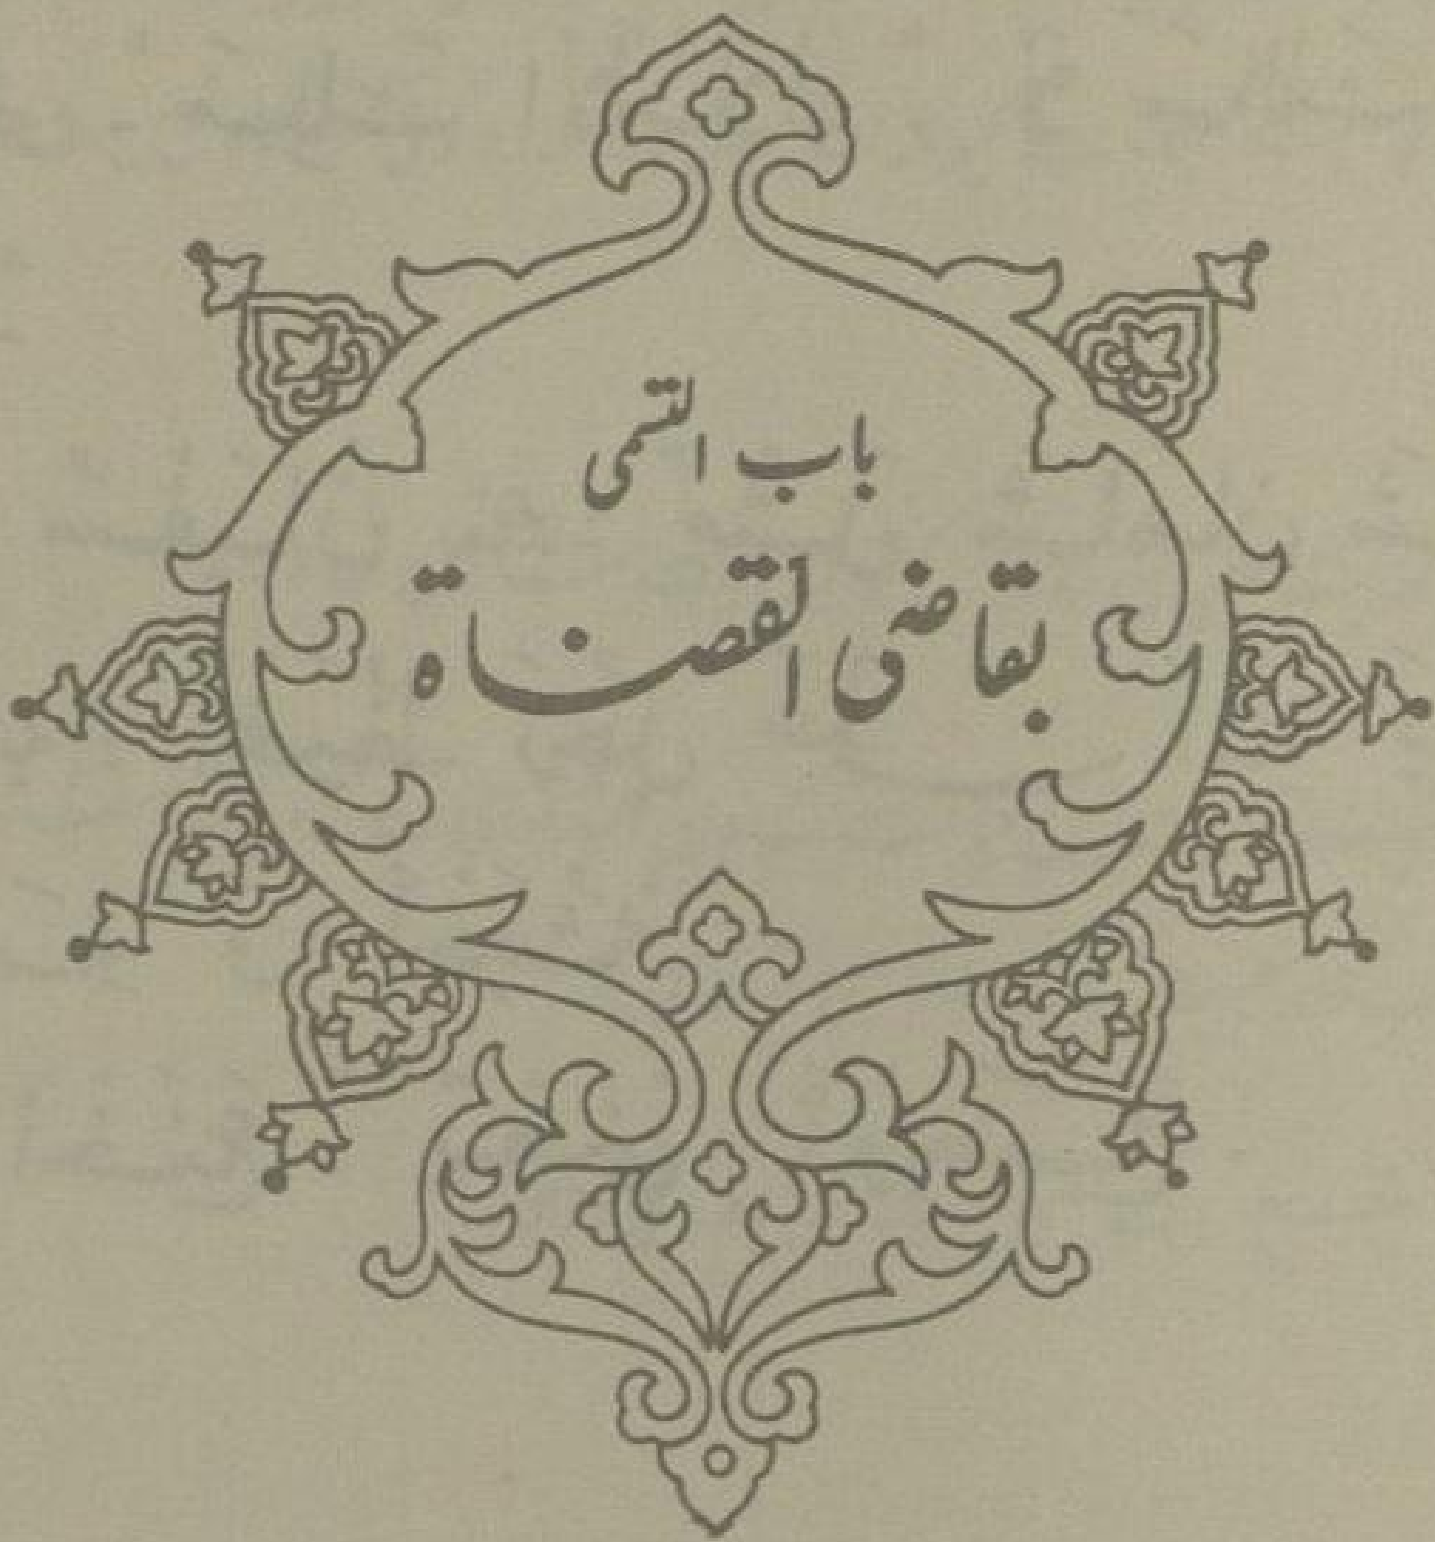 باب التسمى
بقاضى القضاة